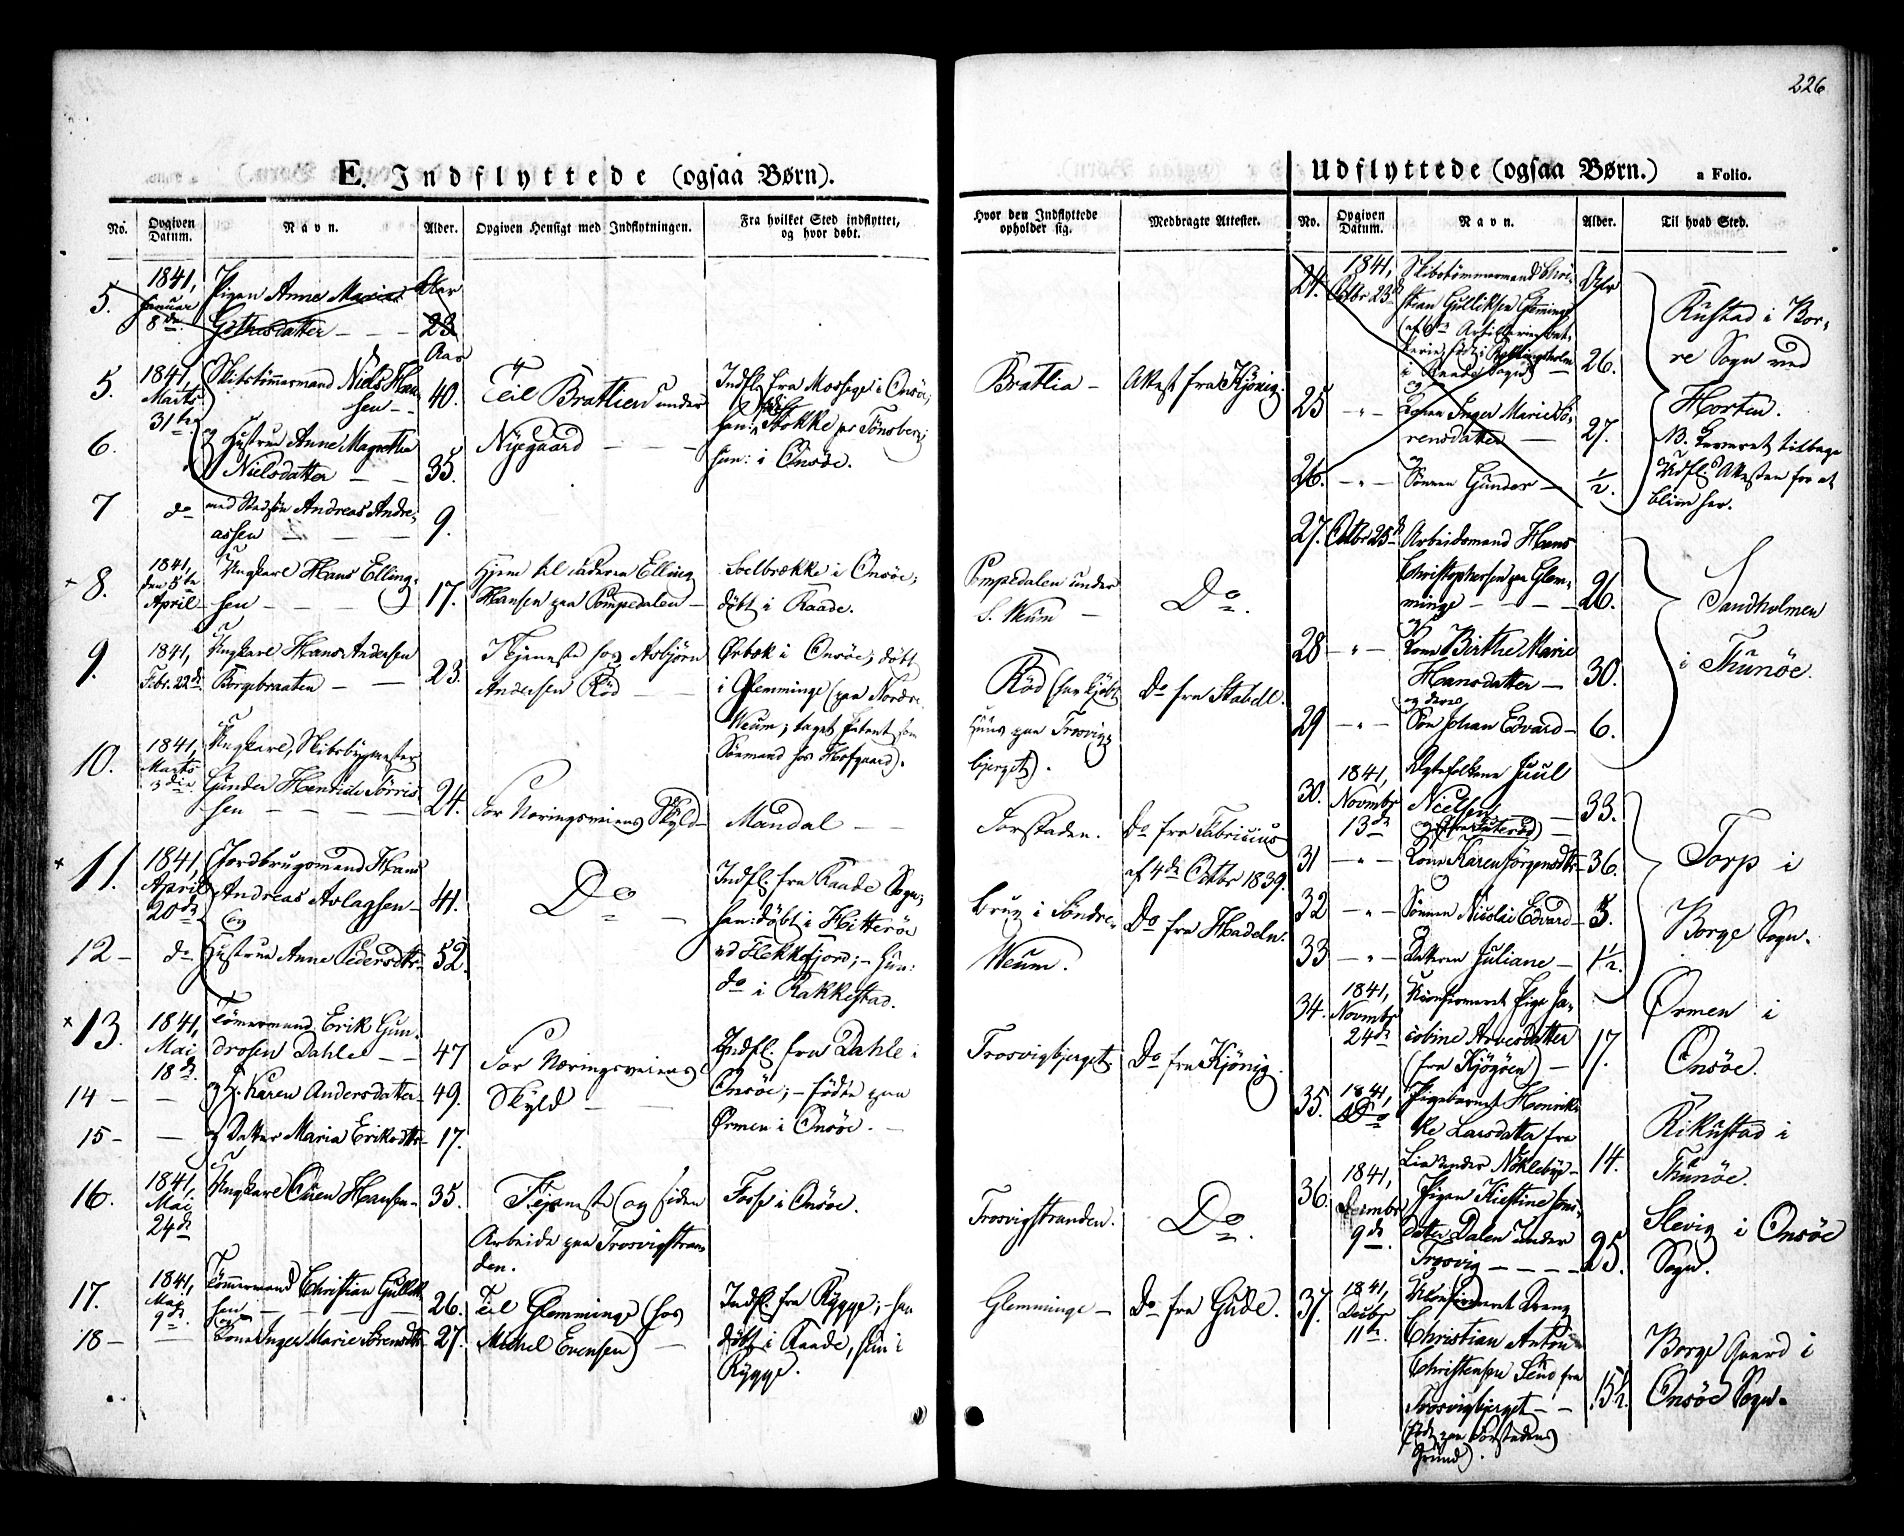 226
E. Indflyttede (ogsaa Børn).
No.
Opgiven Datum.
Navn.
Alder.
Opgiven Hensigt med Indflytningen.
Fra hvilket Sted indflyttet, og hvor døbt.
Hvor den Indflyttede opholder sig.
Medbragte Attester.
5.
1841,
Januar
8de
Pigen Anne Marie
datter
Aar
23
Aar
5.
1841,
Marts
31te
Skibstömmermand Niels Han-
sen
40.
Til Brattlien under
Nyegaard
Indfl. fra Mossige i Onsöe;
han: Stokke pr Tönsberg;
hun: i Onsöe.
Bratlia
Attest fra Kjönig.
6.
og Hustrue Anne Magrethe
Nielsdatter
35.
7
do
med Stedsön Andreas Andre-
assen
9.
8.
1841,
den 5te
April
Ungkarl Hans Elling-
sen
17.
Hjem til Faderen Elling
Hansen paa Pompedalen
i Onsöe;
döbt i Raade.
Pompedalen under
S. Weum
Do.
9.
1841,
Febr. 22de
Ungkarl Hans Andersen
Borgebraaten
23.
Tjeneste hos Asbjörn
Andersen Röd
Ørbæk i Onsöe; döbt
i Glemminge (paa Nordre
Weum; taget Patent som
Sömand hos Hofgaard).
Röd (har kjöbt
Huus paa Trosvig-
bjerget).
Do fra Stabell.
10.
1841,
Marts
3die
Ungkarl, Skibsbygmester
Gunder Henrich Törris-
sen
24.
For Næringsveiens Skyld
Mandal
Forstaden.
Do fra Fabricius
af 4de Octbr 1839.
11.
1841,
April
20de
Jordbrugsmand Hans
Andreas Aslagsen
og
41.
Do
Indfl. fra Raade Sogn;
han: döbt i Hitteröe
ved Flekkefjord; - hun:
do i Rakkestad.
Brug i Söndre
Weum.
Do fra Hadeln.
12
do
Hustrue Anne Pedersdtr
52.
13.
1841,
Mai
18de
Tömermand Erik Gun-
drosen Dahle
47
For Næringsveiens
Skyld
Indfl. fra Dahle i
Onsöe; - födte paa
Ørmen i Onsöe.
Trosvigbjerget.
Do fra Kjönig.
14
og H. Karen Andersdatter
49.
15
og Datter Maria Eriksdtr
17.
16.
1841,
Mai
24de
Ungkarl Ouen Hansen
35.
Tjeneste (og siden
Arbeide paa Trosvigstran-
den.
Foss i Onsöe.
Trosvigstranden.
Do.
17.
1841,
Mai
9de
Tömmermand Christian Gullik-
sen
26.
Til Glemminge (hos
Mikkel Evensen)
Indfl. fra Rygge; - han
döbt i Raade, hun i
Rygge.
Glemminge
Do fra Gude.
18
og
Kone Inger Marie Sörensdtr
27.
Udflyttede (ogsaa Børn.)
a Folio.
No.
Opgiven Datum.
Navn.
Alder.
Til hvad Sted.
24.
1841,
Octbr 23de
Skibstömmermand Chri-
stian Gulliksen Glemminge
i Raade Sogn
og
Aar
26.
Rustad i Bor-
re Sogn ved
Horten.
NB. Leveret tilbage
Udfl. Attesten for at
blive her.
25
Konen Inger Marie Sö-
rensdatter
27.
26.
og
Sönnen Gunder
1/2.
27.
Octbr 25de
Arbeidsmand Hans
Christophersen paa Glem-
minge
26.
Sandholmen
i Thunöe.
28
og
Kone Birthe Marie
Hansdatter
30.
29
og deres
Sön Johan Edvard
6.
30.
1841,
Novmbr
13de
Ægtefolkene Juul
Nielsen
33.
Torp i
Borge Sogn.
31
og
Kone Karen Jörgensdtr
36.
32
Sönnen Edvard
5.
33
Datteren Juliane
1 1/2.
34.
1841,
Novmbr
24de
Ukonfirmeret Pige Ja-
cobine Arvesdatter
(fra Kjögöen)
17.
Ørmen i
Onsöe.
35.
1841,
Do
Pigebarnet Henrik-
ke Larsdatter fra
Lie under Nökleby
14.
Kikustad i
Thunöe.
36.
1841,
Decembr
9de
Pigen Kirstine Jens-
datter Dalen under
Trosvig
25.
Slevig i Onsöe
Sogn.
37.
1841,
Decbr
11te
Ukonfirmeret Dreng
Christian Anton
Christensen fra
Trosvigbjerget
(födt paa Forstadens
Grund).
15 1/2.
Borge Gaard i
Onsöe Sogn.